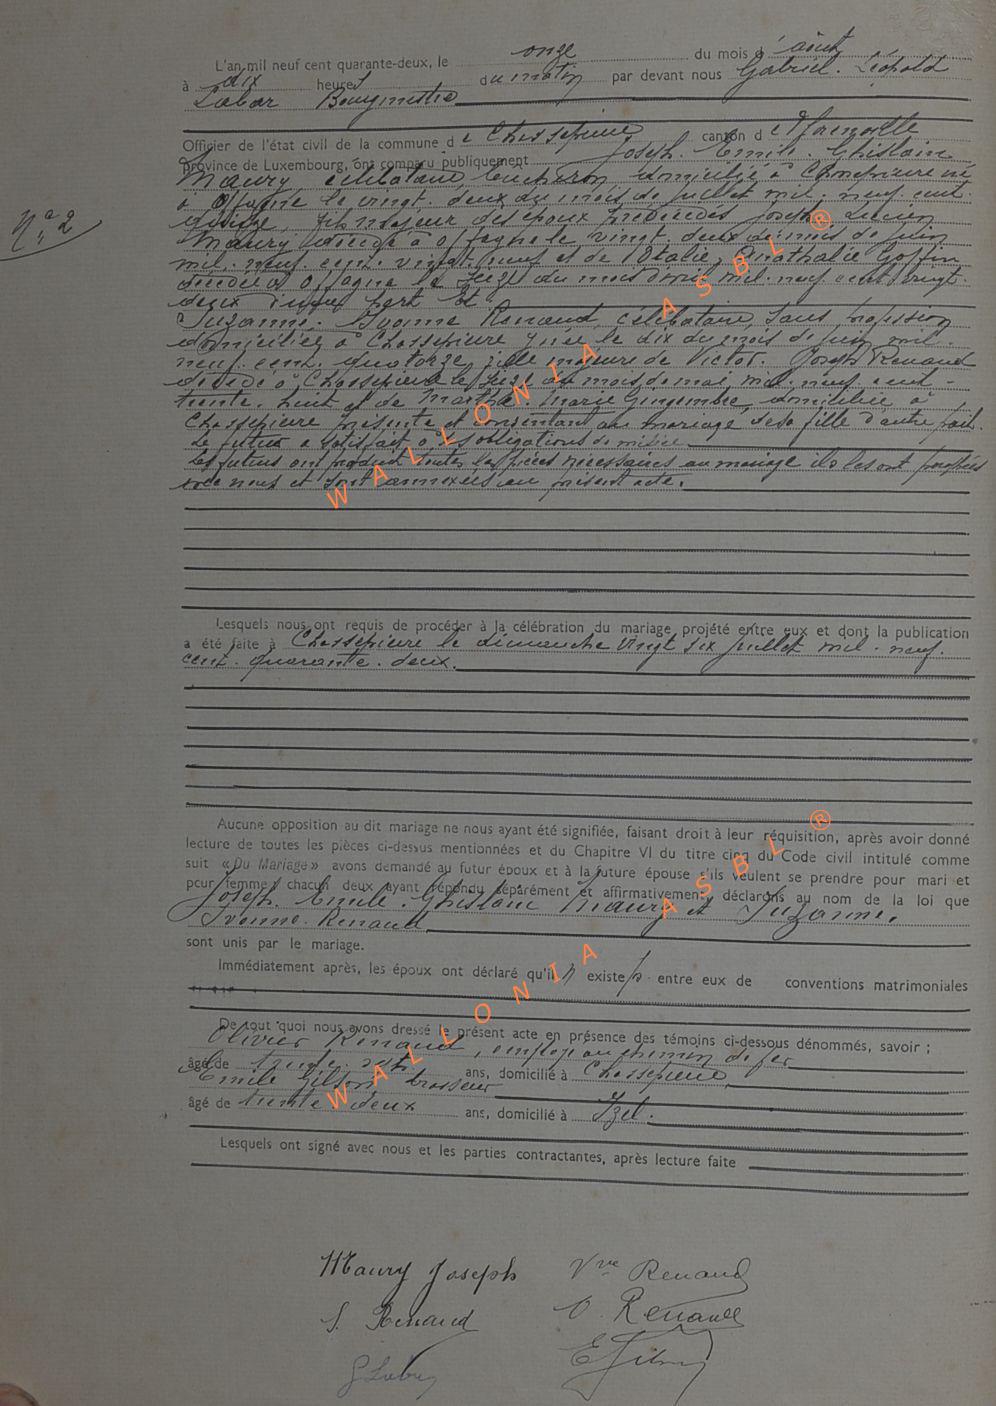 L'an mil neuf cent quarante-deux, le onze du mois d'août
à dix heures du matin par devant nous Gabriel. Léopold
Labar Bourgmestre
Officier de l'état civil de la commune de Chassepierre canton de Florenville
province de Luxembourg, ont comparu publiquement Joseph. Emile. Ghislain
Maury, célibataire, bucheron domicilié à Chassepierre né
à Offagne le vingt. deux du mois de juillet mil. neuf cent
fils majeur des époux prédécédés Joseph Lucien
Maury décédé à Offagne le vingt deux du mois de juin
mil. neuf. cent. vingt. neuf et de Goffin
décédée à Offagne le seize du mois mil. neuf cent vingt.
deux d'une part Et
Suzanne. Yvonne Renaud, célibataire, sans profession
domiciliée à Chassepierre y née le dix du mois de juin mil.
neuf. cent. quatorze, fille majeure de Victor. Joseph Renaud
décédé à Chassepierre le seize du mois de mai mil. neuf cent
trente. huit et de Martha. Marie Gingembre, domiciliée à
Chassepierre présente et consentant au mariage de sa fille d'autre part.
Le futur a satisfait à ses obligations de milice
Les futurs ont produit toutes les pièces nécessaires au mariage ils les ont
nous et sont annexées au présent acte.
Nº 2
Lesquels nous ont requis de procéder à la célébration du mariage projété entre eux et dont la publication
a été faite à Chassepierre le dimanche vingt six juillet mil. neuf.
cent. quarante. deux.
Aucune opposition au dit mariage ne nous ayant été signifiée, faisant droit à leur réquisition, après avoir donné
lecture de toutes les pièces ci-dessus mentionnées et du Chapitre VI du titre cinq du Code civil intitulé comme
suit « Du Mariage » avons demandé au futur époux et à la future épouse s'ils veulent se prendre pour mari et
pour femme; chacun deux ayant répondu séparément et affirmativement, déclarons au nom de la loi que
Joseph. Emile. Ghislain Maury et Suzanne.
Yvonne. Renaud
sont unis par le mariage.
Immédiatement après, les époux ont déclaré qu'il n'existe pas entre eux de conventions matrimoniales
De tout quoi nous avons dressé le présent acte en présence des témoins ci-dessous dénommés, savoir ;
Olivier Renaud, employé au chemin de fer
âgé de trente. ans, domicilié à Chassepierre
Emile Gilson brasseur
âgé de trente. deux ans, domicilié à Izel.
Lesquels ont signé avec nous et les parties contractantes, après lecture faite
Maury Joseph Vve Renaud
S. Renaud O. Renauld
G Labar E Gilson
WALLONIA ASBL ®
WALLONIA ASBL ®